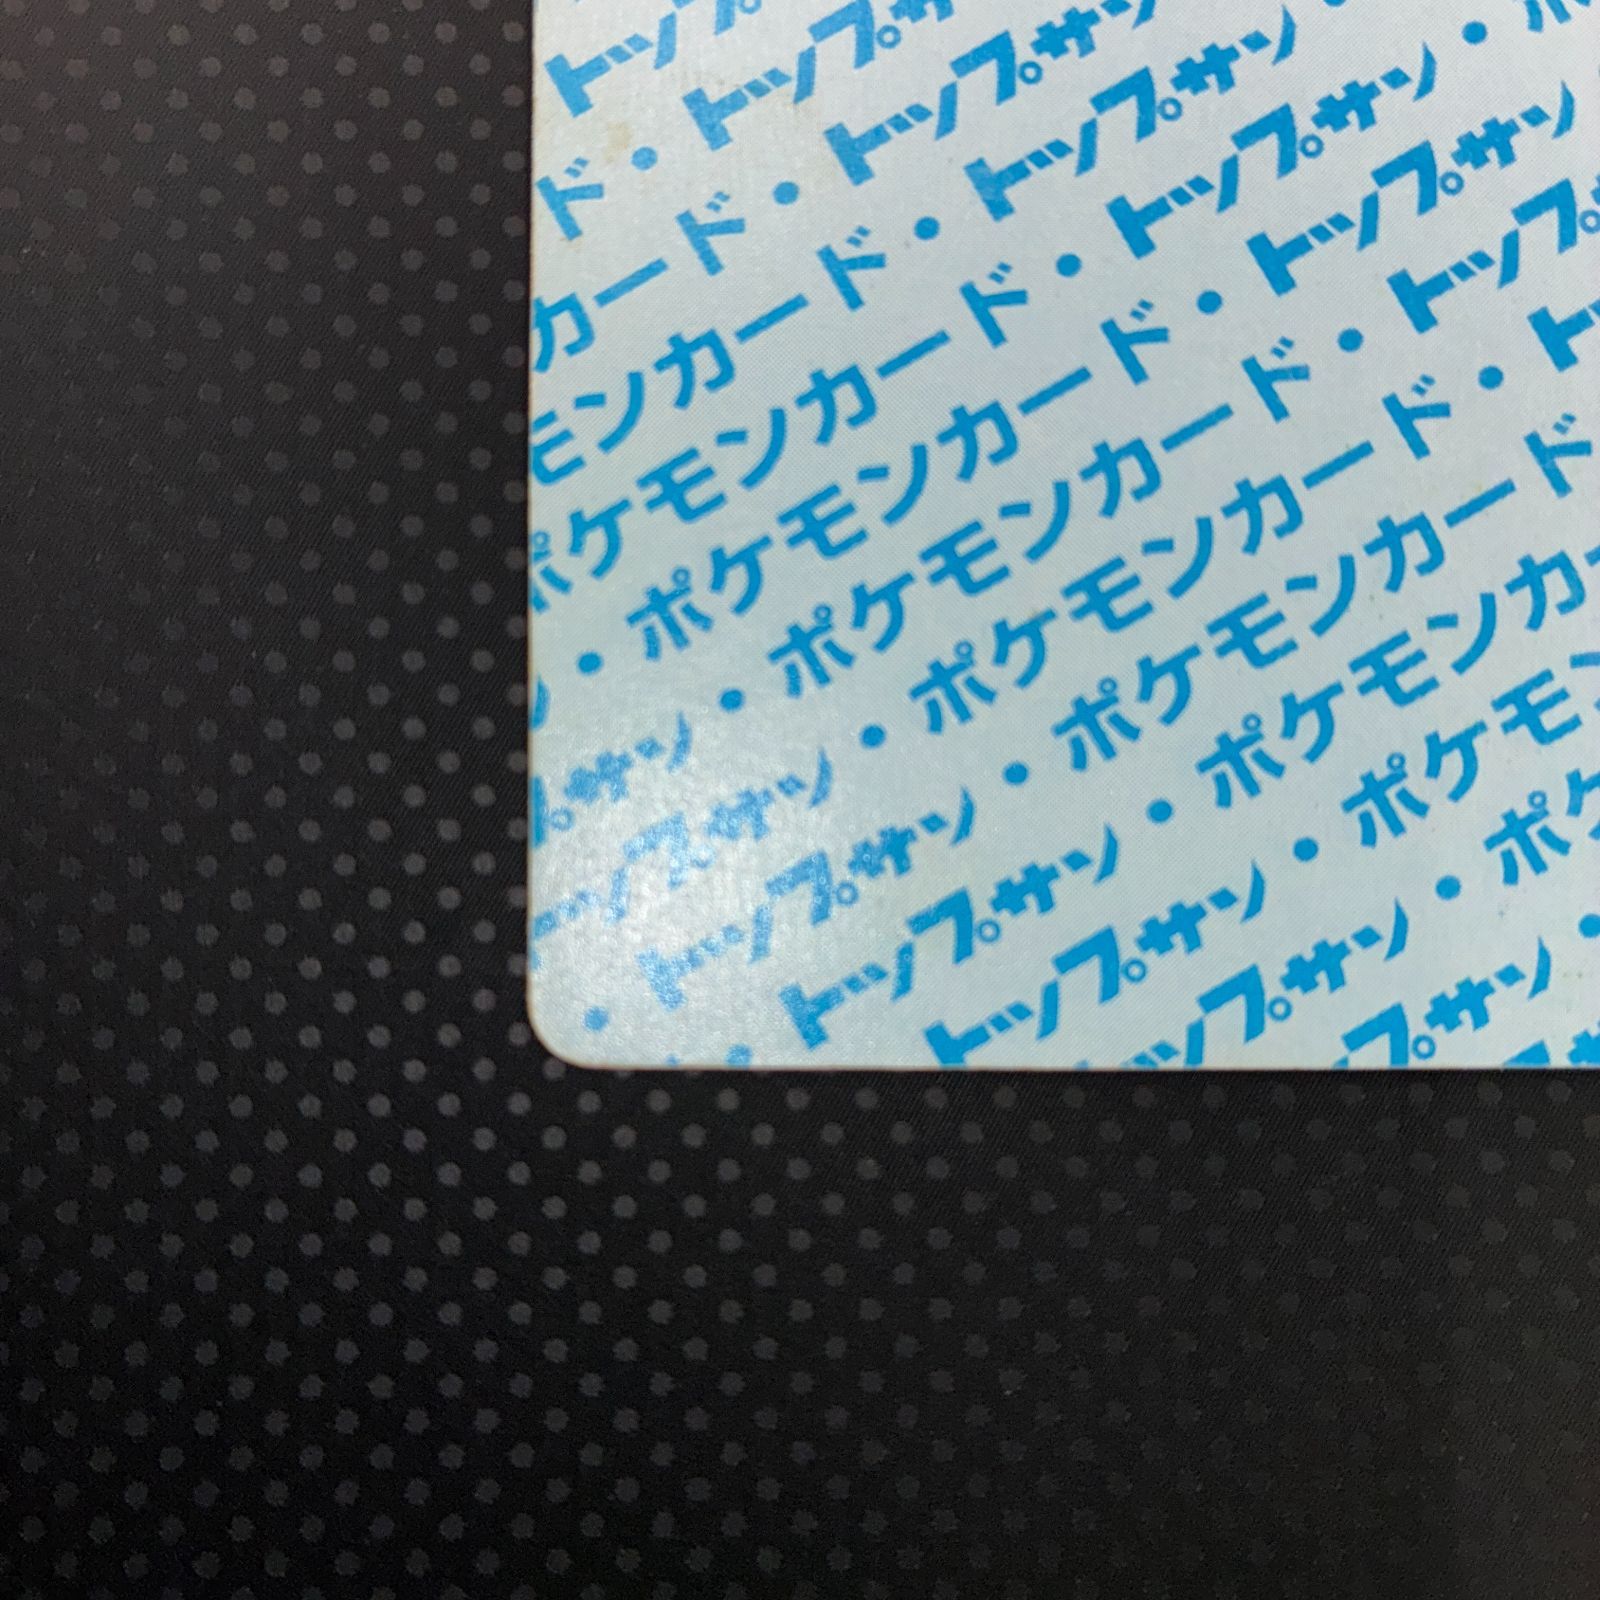 トップ
ド・トップサ
カード・トップサン
モンカード・トップサン・
ポケモンカード・トップサン・ポ
ン・ポケモンカード・トップサン
プサン・ポケモンカード・トップ
ップサン・ポケモンカード・ト
・トップサン・ポケモンカード
・トップサン・ポケモンカー
トップサン・ポケモン
ップサン・ポケ
プサン・